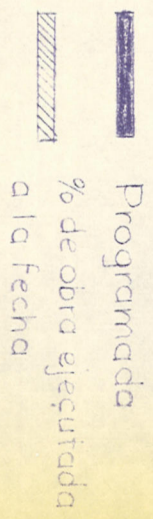 Programada
% de obra ejecutada
a la fecha